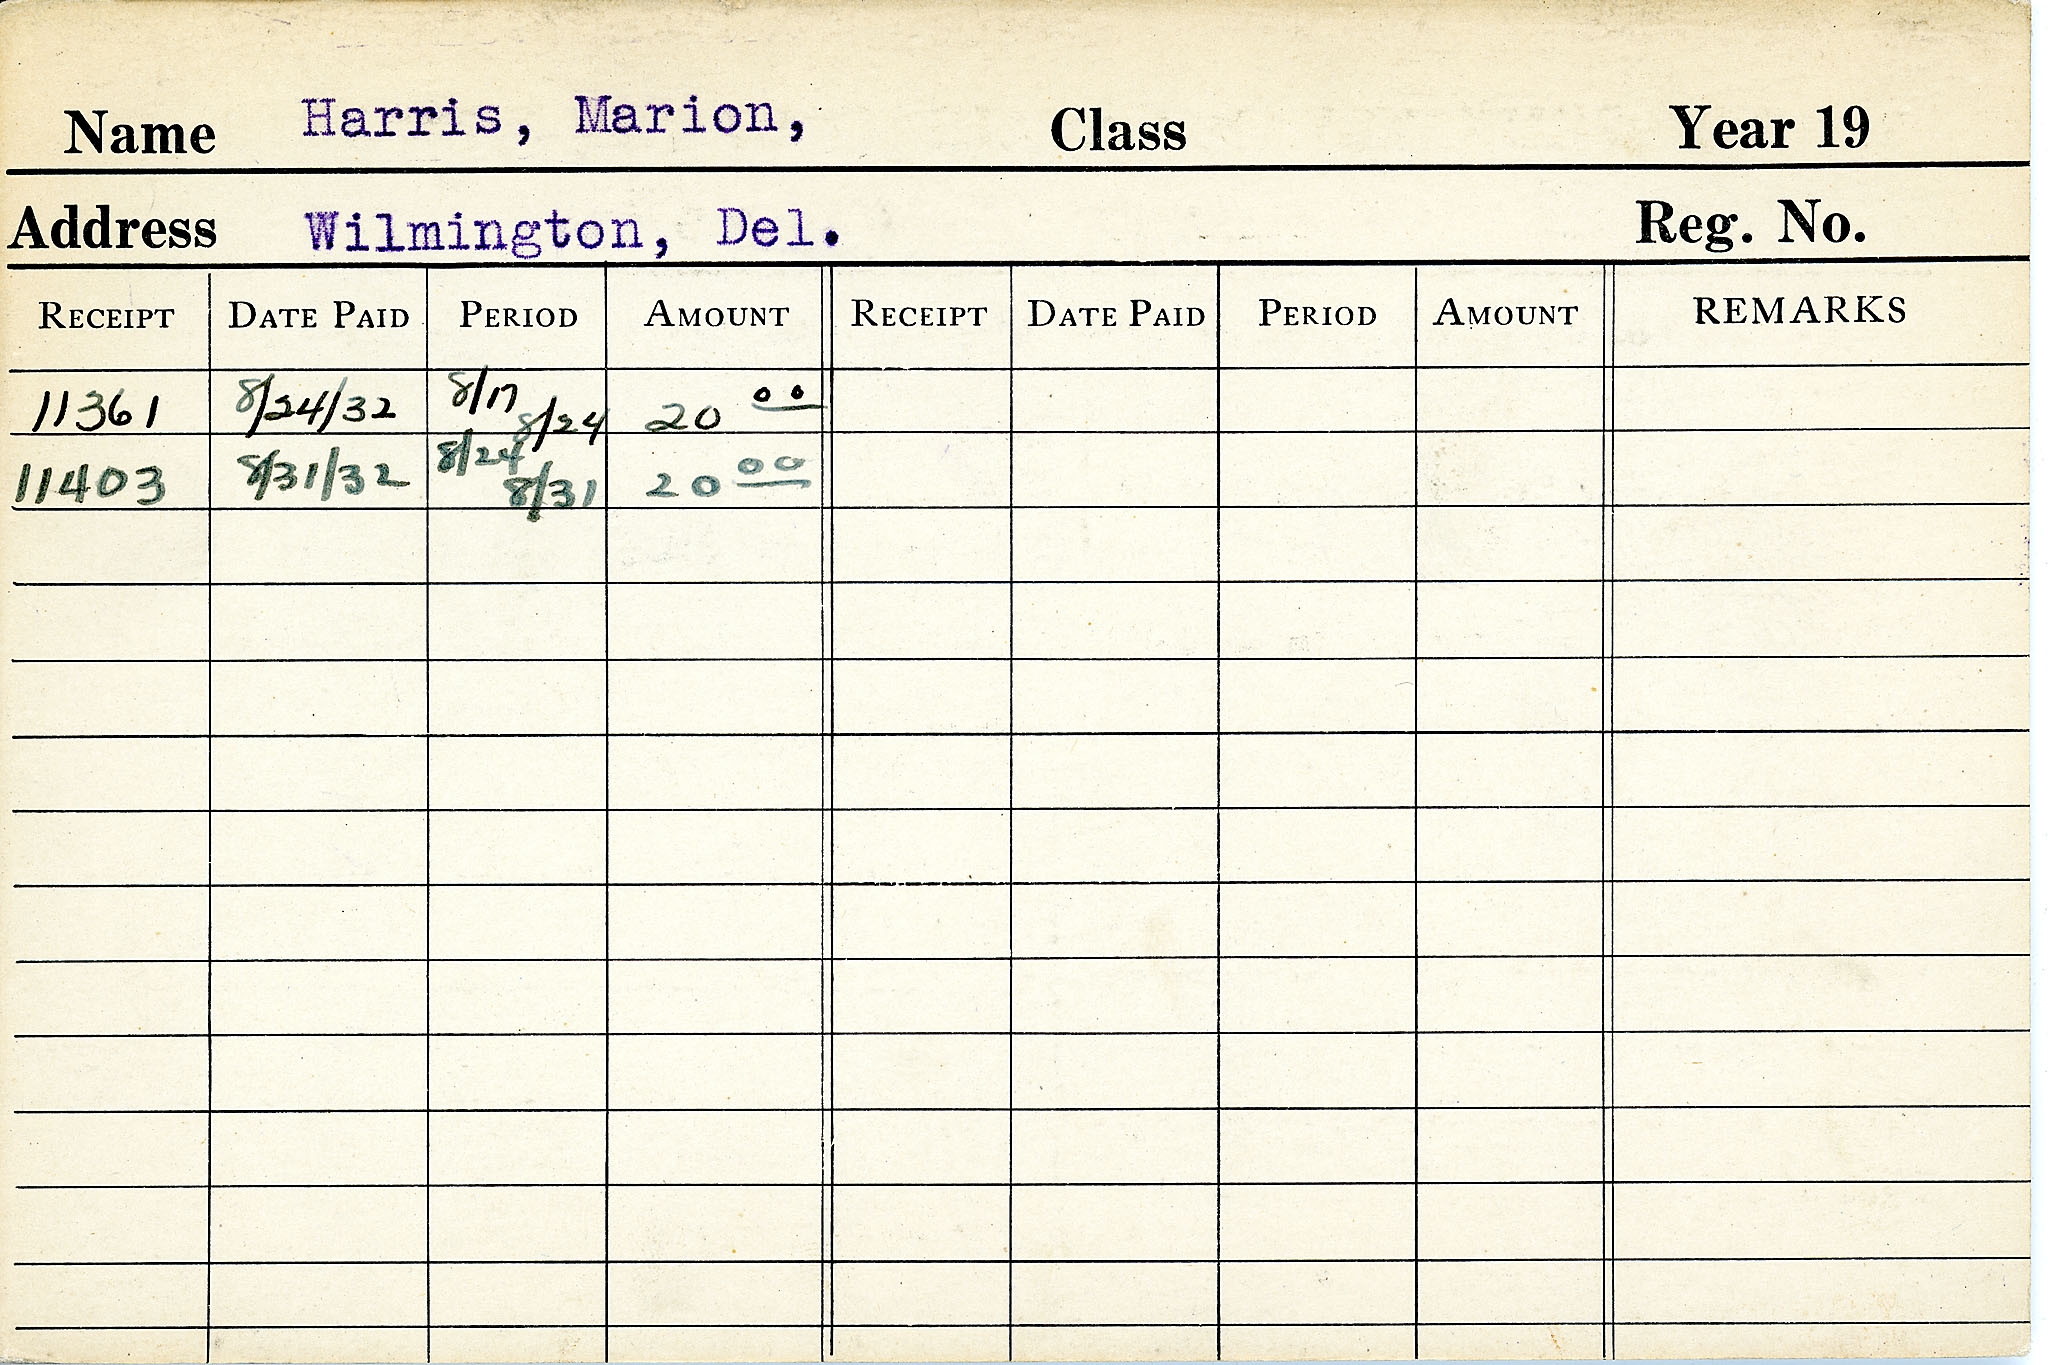 Name Harris, Marion, Class Year 19
Address Wilmington, Del. Reg. No.
RECEIPT DATE PAID PERIOD AMOUNT RECEIPT DATE PAID PERIOD AMOUNT REMARKS
11361 8/24/32 8/17 8/24 20 00
11403 8/31/32 8/24 8/31 20 00